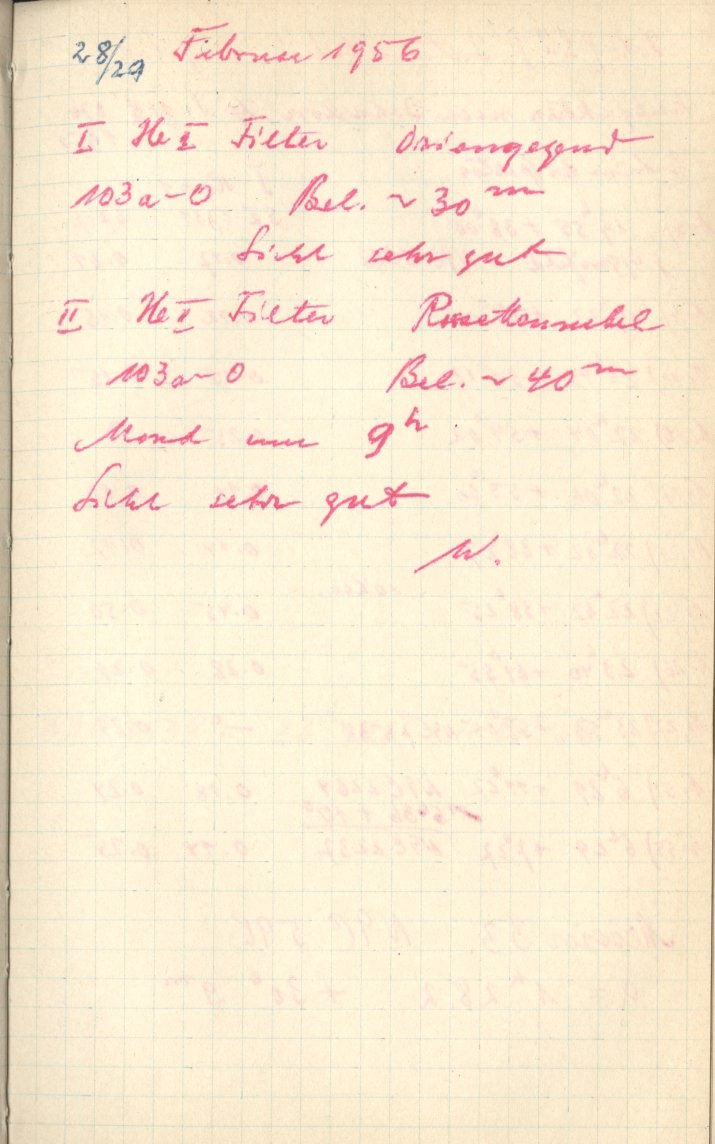 28/29 Februar 1956
I He II Filter Oriongegend
103a-O Bel. ~ 30 m
Sicht sehr gut
II He II Filter Rosettennebel
103a-O Bel. ~ 40 m
Mond um 9 h
Sicht sehr gut
W.